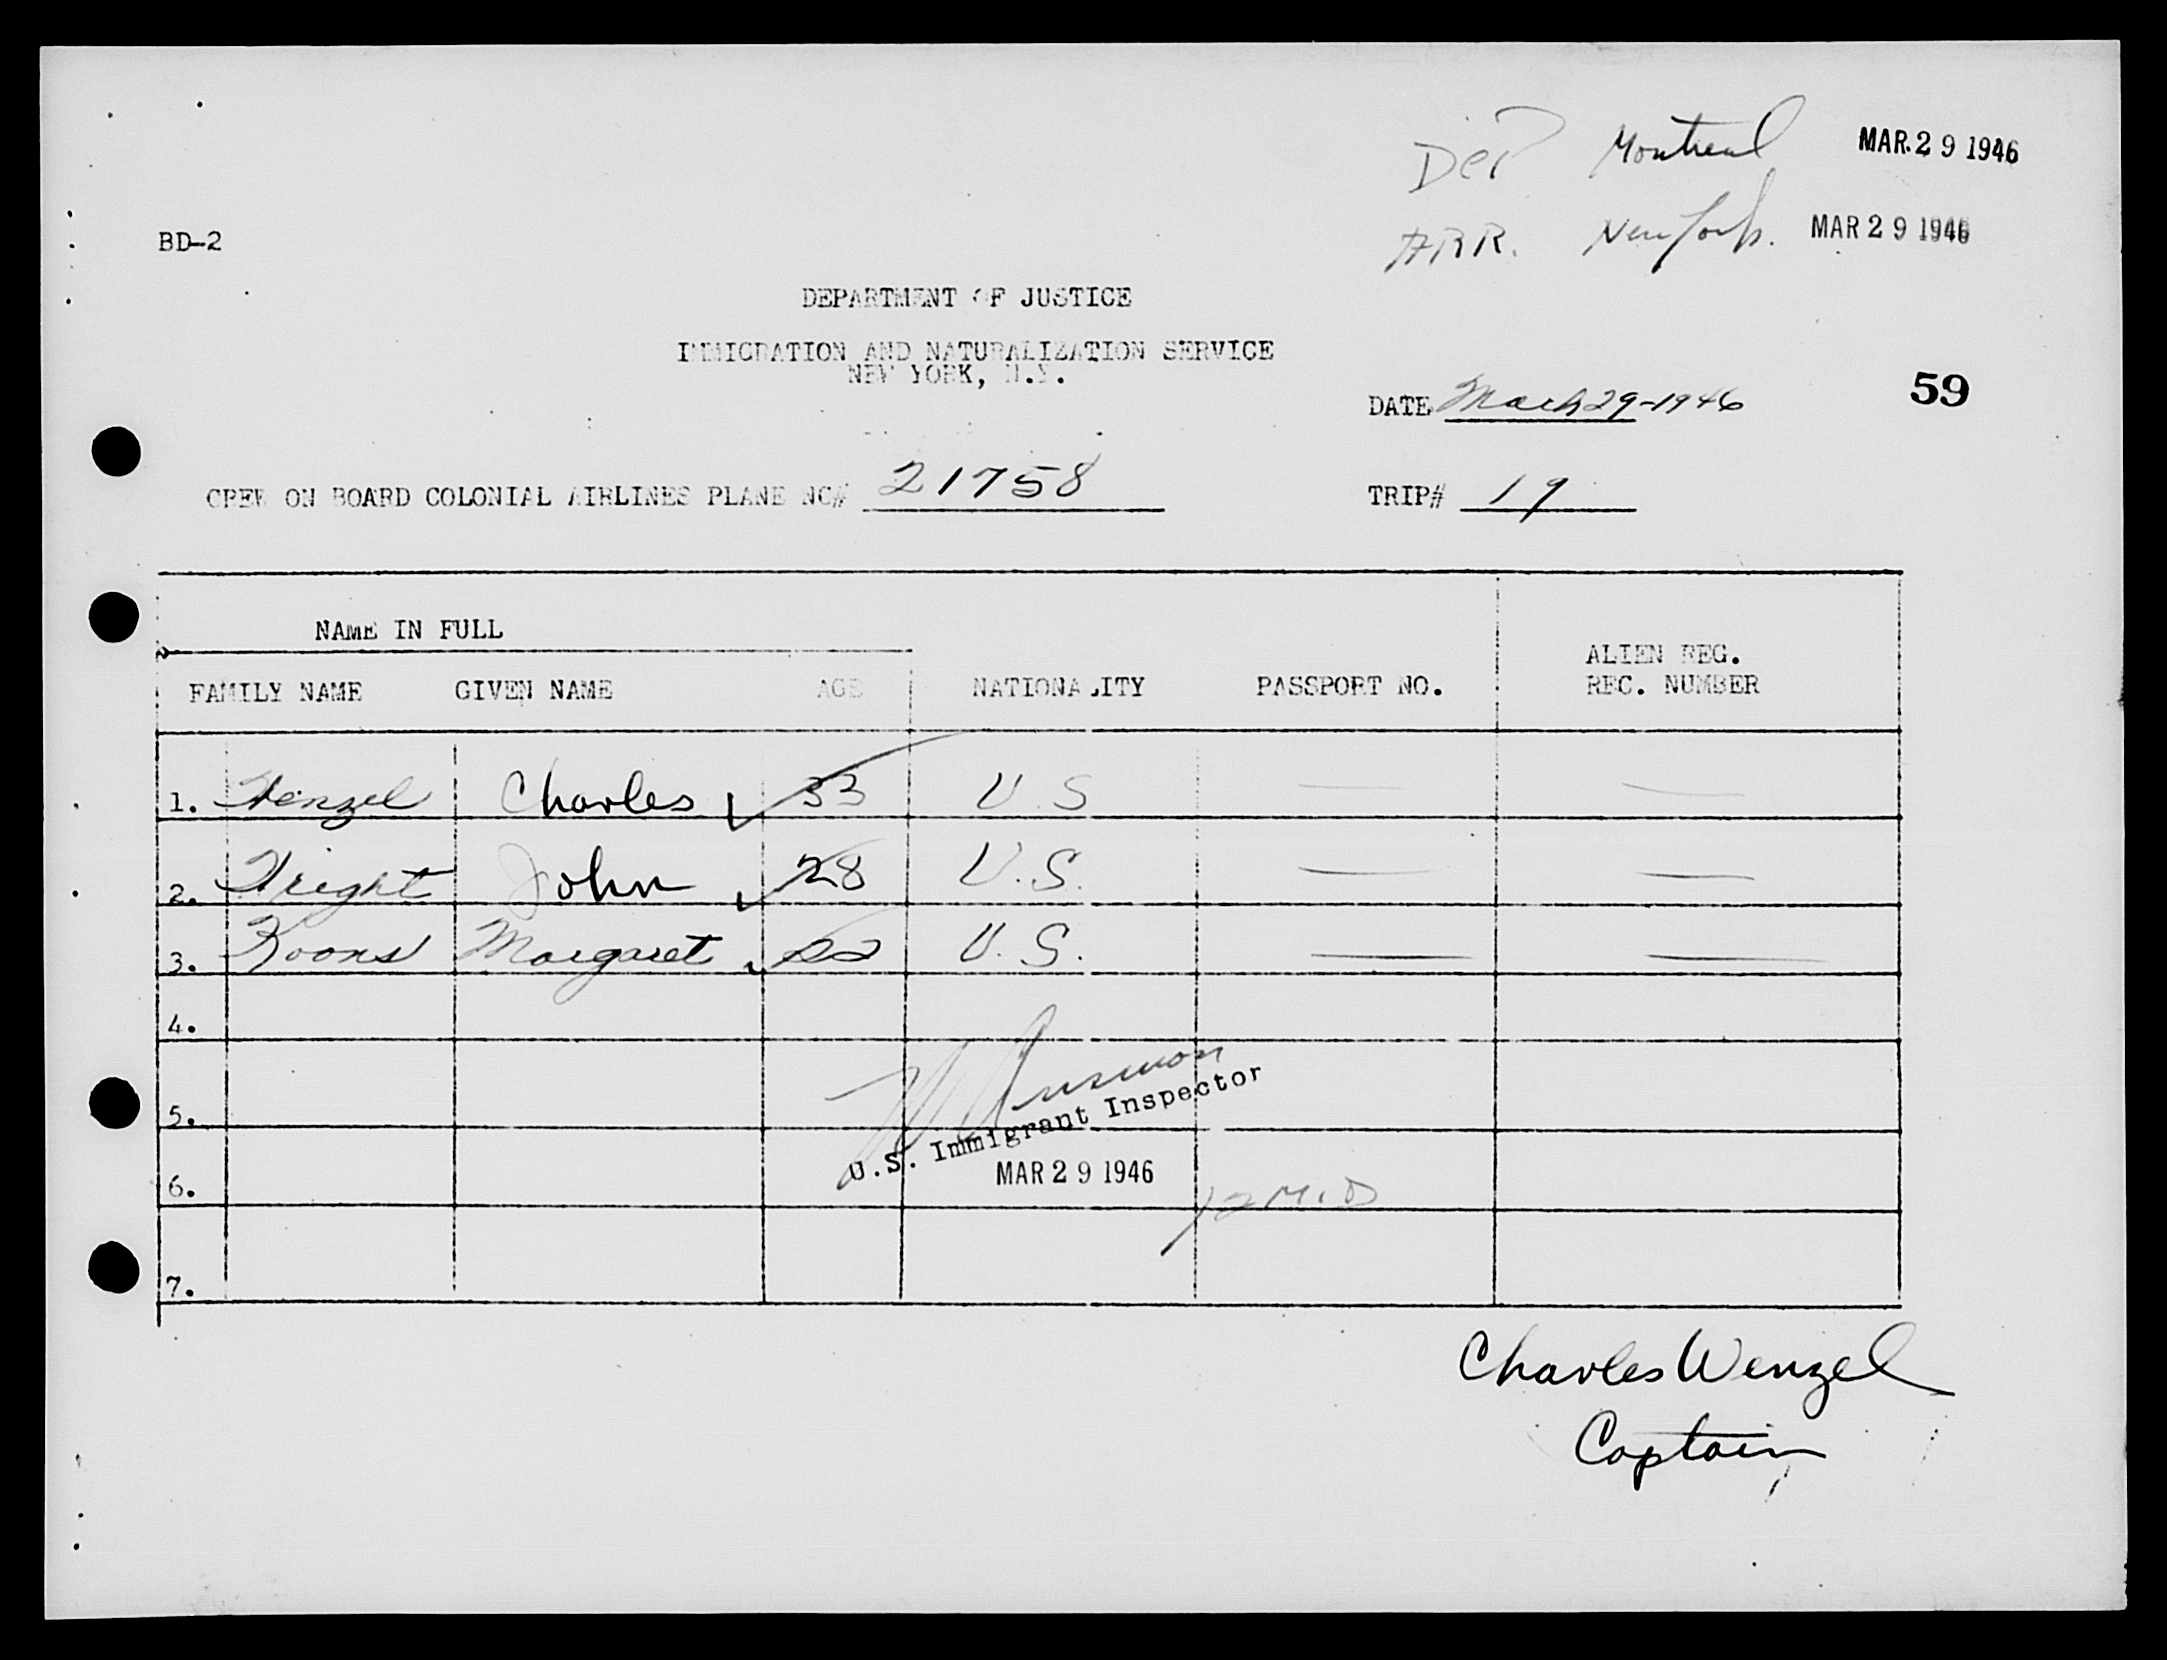 Dep Montreal MAR. 29 1946
ARR. New York. MAR 29 1946
BD-2
DEPARTMENT OF JUSTICE
IMMIGRATION AND NATURALIZATION SERVICE
NEW YORK, N.Y.
DATE March 29-1946
59
CREW ON BOARD COLONIAL AIRLINES PLANE NC# 21758 TRIP# 19
NAME IN FULL
ALIEN REG.
FAMILY NAME GIVEN NAME AGE NATIONALITY PASSPORT NO. REC. NUMBER
1. Wenzel Charles 33 U.S — —
2. Wright John 28 U.S. — —
3. Koons Margaret 22 U.S. — —
4.
5.
U.S. Immigrant Inspector
MAR 29 1946
6.
7.
Charles Wenzel
Captain